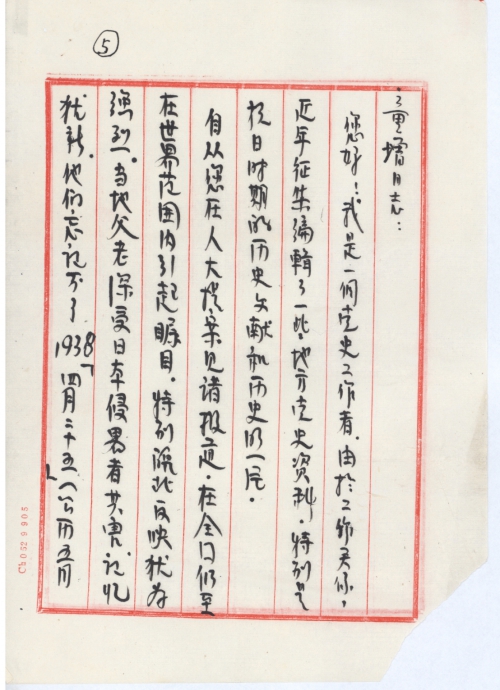 ⑤
童增同志：
您好！我是一个党史工作者，由于工作关系，
近年征集编辑了一些地方党史资料，特别是
抗日时期的历史文献和历史的一民。
自从您在人大提案见诸报道，在全门仍至
在世界范围内引起瞩目。特别 此反映犹为
强烈。当地父老深受日本侵略者其害，记忆
犹新。他们忘记不了1938「四月二十五」（公历五月
Cb052 9905